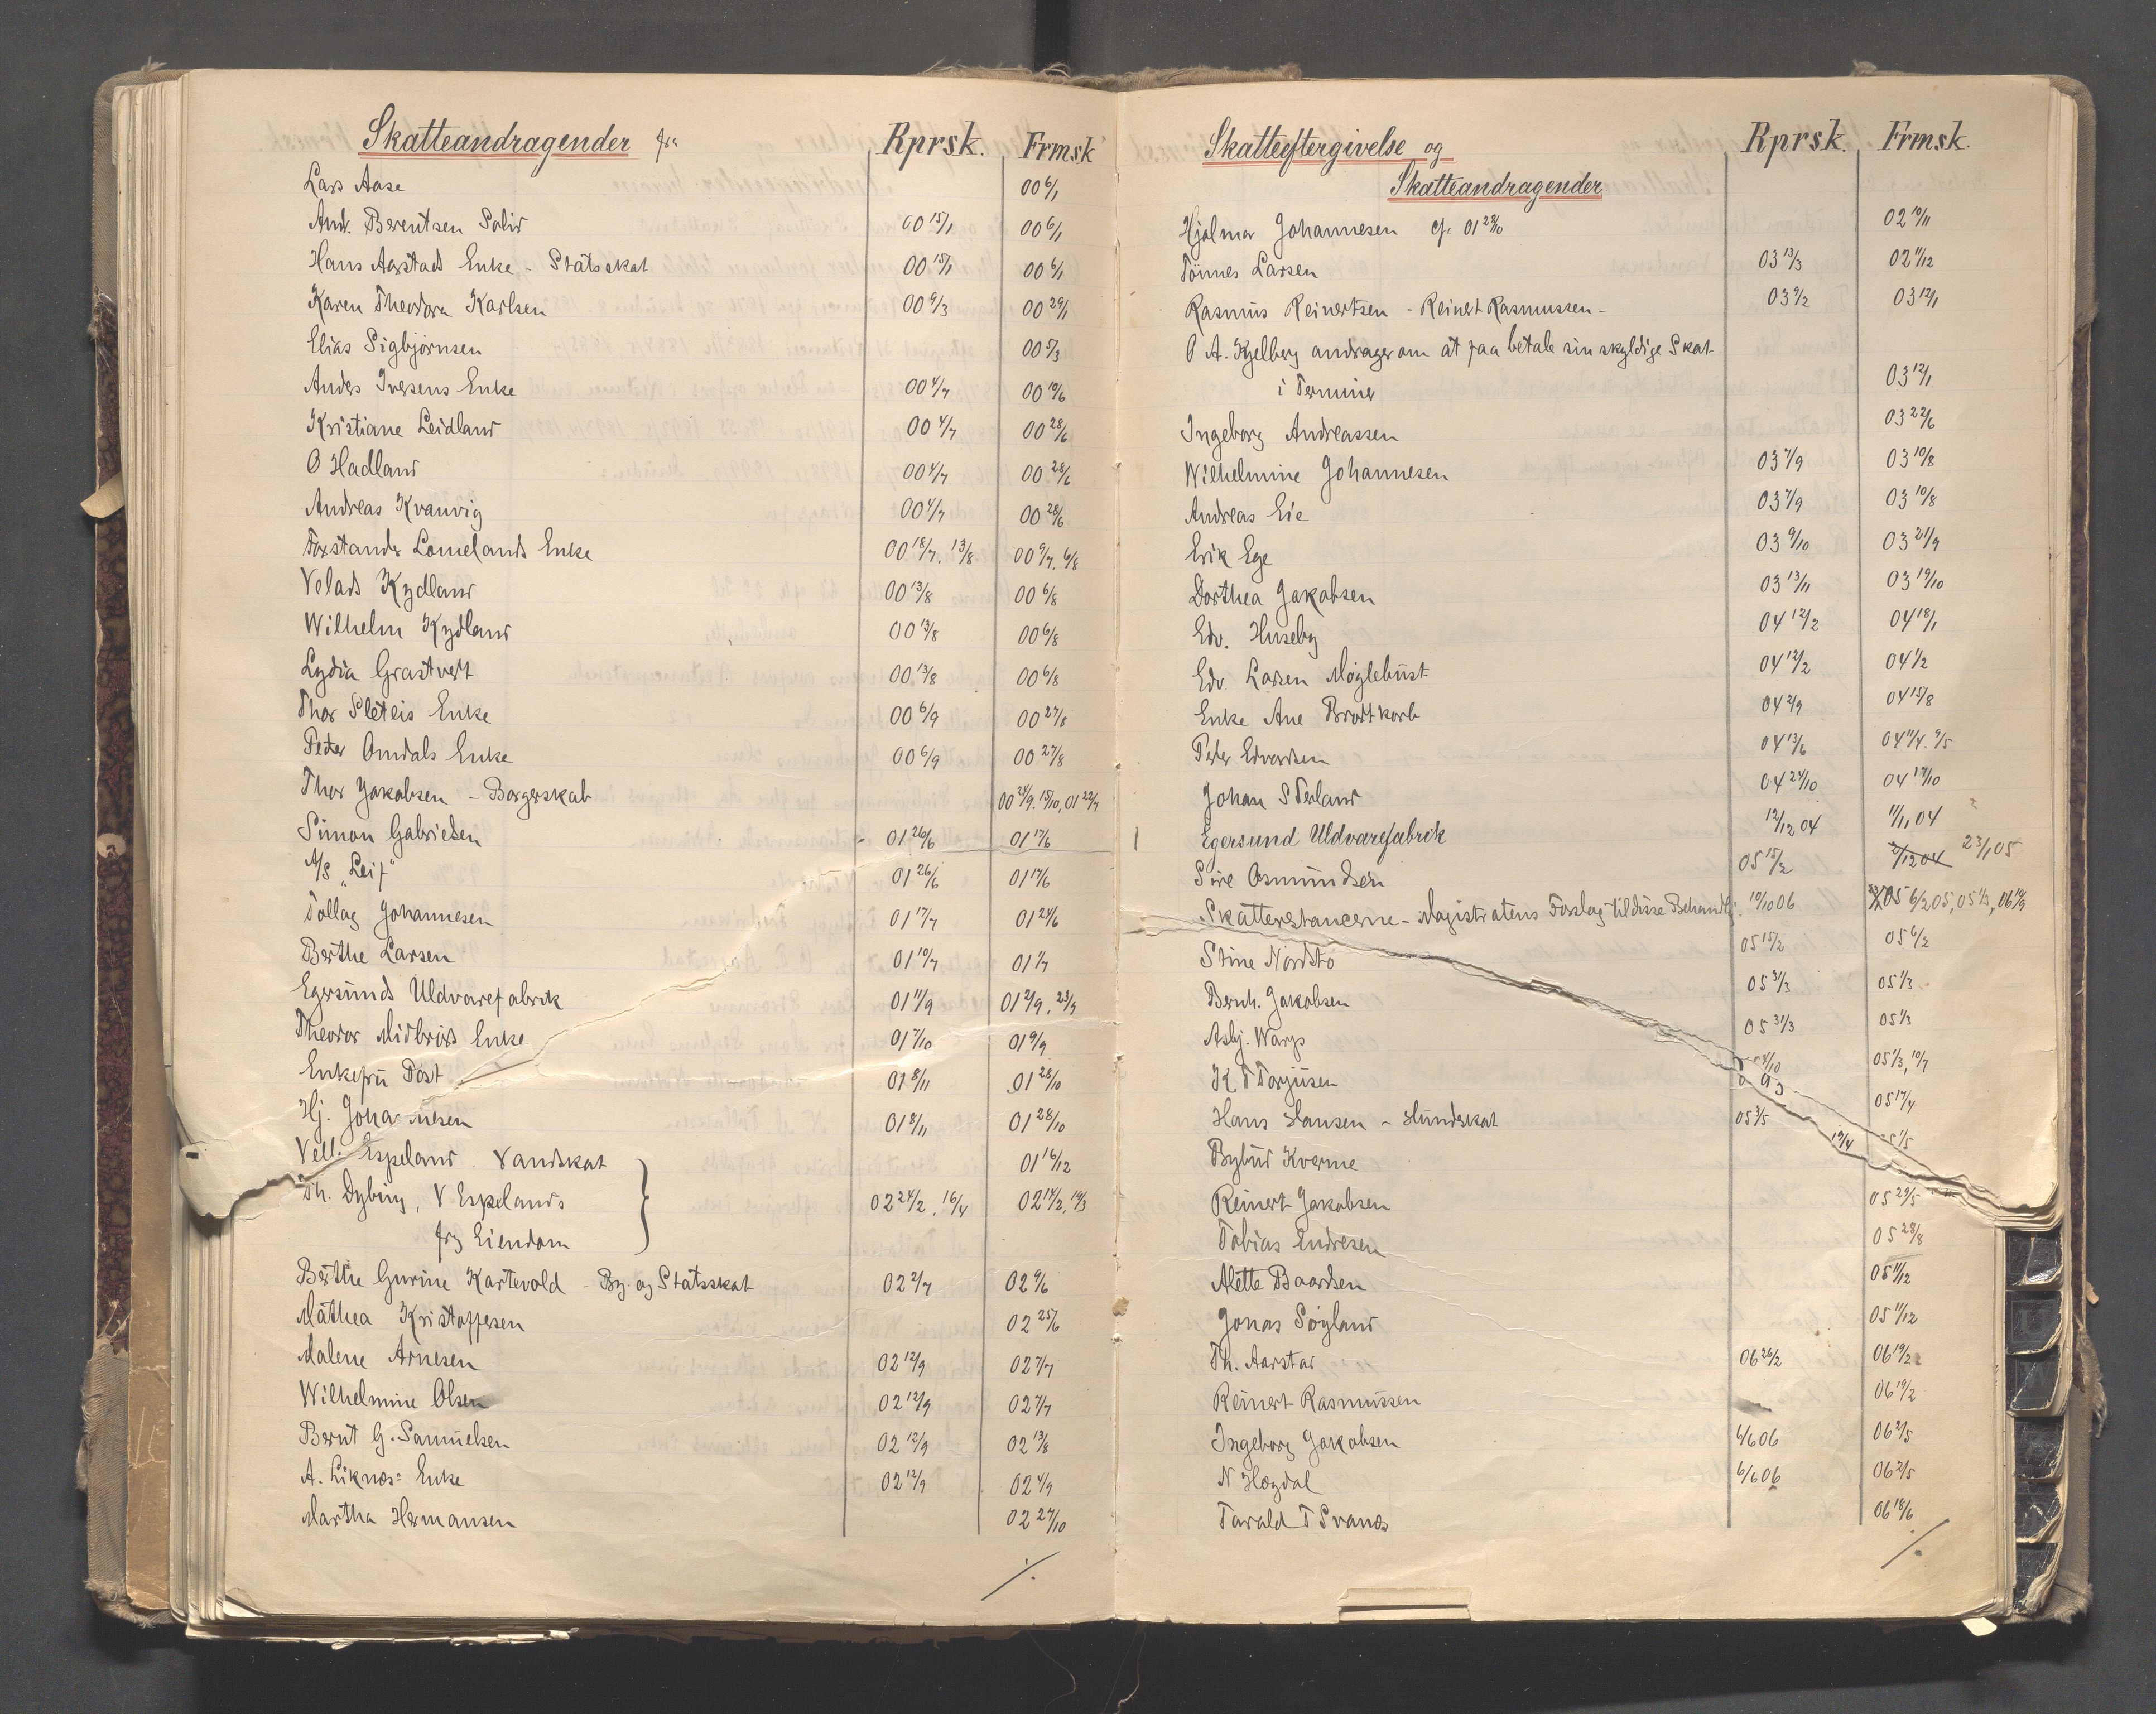 Skatteandragender fra Rprsk. Frmsk
Lars Aase 00 6/1
Andr. Berentsen Solid 00 15/1 00 6/1
Hans Aarstads Enke - Statsskat 00 15/1 00 6/1
Karen Theodora Karlsen 00 9/3 00 29/1
Elias Sigbjørnsen 00 5/3
Anders Iversens Enke 00 4/7 00 19/6
Kristiane Leidland 00 4/7 00 28/6
O Hadland 00 4/7 00 28/6
Andreas Kvanvig 00 4/7 00 28/6
Forstander Lomelands Enke 00 18/7. 13/8 00 9/7. 6/8
Velads Kydland 00 13/8 00 6/8
Wilhelm Kydland 00 13/8 00 6/8
Lydia Grastveit 00 13/8 00 6/8
Thor Sleteis Enke 00 6/9 00 27/8
Peder Omdals Enke 00 6/9 00 27/8
Thor Jakobsen - Borgerskab 00 24/9. 15/10, 01 22/7
Simon Gabrielsen - 01 26/6 01 17/6
A/S "Leif" 01 26/6 01 17/6
Tollag Johannesen 01 17/7 01 24/6
Berthe Larsen 01 10/7 01 1/7
Egersunds Uldvarefabrik 01 11/9 01 2/9, 23/9
Theodor Midbrøds Enke 01 7/10 01 9/9
Enkefru Dost 01 8/11 01 28/10
Hj. Johannesen 01 8/11 01 28/10
Vell. Espeland Vandskat 01 16/12
Th. Dybing, V Espelands 02 24/2, 16/4 02 14/2, 19/3
frg Eiendom
Berthe Gurine Kartevold - By. og Statsskat 02 2/7 02 9/6
Mathea Kristoffersen 02 25/6
Malene Arnesen 02 12/9 02 7/7
Wilhelmine Olsen 02 12/9 02 7/7
Bernt G. Samuelsen 02 12/9 02 13/8
A. Liknæs: Enke 02 12/9 02 4/9
Martha Hermansen 02 27/10
/.
Skatteeftergivelse og Rprsk. Frmsk.
Skatteandragender
Hjalmar Johannesen cfr 01 28/10 02 10/11
Tönnes Larsen 03 13/3 02 11/12
Rasmus Reinertsen - Reinert Rasmussen - 03 9/2 03 12/1
O A. Kjelberg andrager om at faa betale sin skyldige Skat
i Terminer 03 12/1
Ingeborg Andreassen 03 22/6
Wilhelmine Johannesen 03 7/9 03 10/8
Andreas Eie 03 7/9 03 10/8
Erik Ege 03 9/10 03 21/9
Dorthea Jakobsen 03 13/11 03 19/10
Edv. Huseby 04 12/2 04 18/1
Edv. Larsen Møglebust 04 12/2 04 1/2
Enke Ane Brodtkorb 04 2/9 04 15/8
Peder Edvardsen 04 13/6 04 11/4. 9/5
Johan S Terland 04 24/10 04 17/10
Egersund Uldvarefabrik 12/12 04 11/11 04
Sire Osmundsen 05 15/2 2/12 04 23/1 05
Skatterestancerne - Magistratens Forslag til disse Behandlg. 10/10 06 6/2 05, 05 1/3, 06 19/9
Stine Nordstø 05 15/2 05 6/2
Bernh. Jakobsen 05 31/3 05 1/3
Asbj. Warp 05 31/3 05 1/3
K. T Torjusen 05 1/3, 10/7
Hans Hansen - Hundskat 05 3/5 05 17/4
Bybud Kverme
Reinert Jakobsen 05 29/5
Tobias Endresen 05 28/8
Alette Baardsen 05 11/12
Jonas Søyland 05 11/12
Th. Aarstad 06 26/2 06 19/2
Reinert Rasmussen 06 19/2
Ingeborg Jakobsen 6/6 06 06 2/5
N Hægdal 6/6 06 06 2/5
Tarald T Svanes 06 18/6
/.